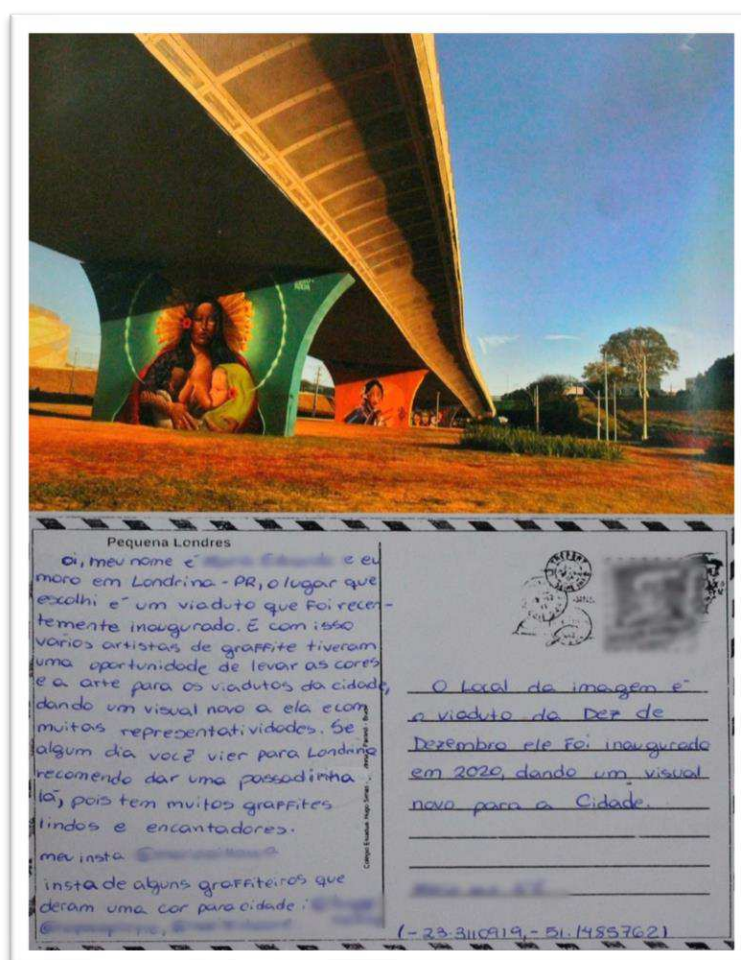 Pequena Londres
Oi, meu nome é e eu
moro em Londrina - PR, o lugar que
escolhi é um viaduto que Foi recen-
temente inaugurado. E com isso
varios artistas de graffite tiveram
uma oportunidade de levar as cores
e a arte para os viadutos da cidade,
dando um visual novo a ela e com
muitas representatividades. Se
algum dia você vier para Londrina
recomendo dar uma passadinha
lá, pois tem muitos graffites
lindos e encantadores.
meu insta
insta de alguns graffiteiros que
deram uma cor para cidade:
O Local da imagem é
o viaduto da Dez de
Dezembro ele Foi inaugurado
em 2020, dando um visual
novo para a Cidade.